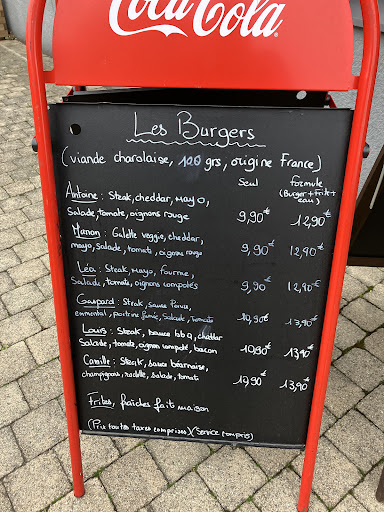 Coca-Cola
Les Burgers
(viande charolaise, 120 grs, origine France)
Seul formule
(Burger + frite +
eau)
Antoine : Steak, cheddar, mayo,
Salade, tomate, oignons rouge 9,90€ 12,90€
Manon : Galette veggie, cheddar,
mayo, salade, tomate, oignons rouge 9,90€ 12,90€
Léa : Steak, mayo, fourme,
Salade, tomate, oignons compotés 9,90€ 12,90€
Gaspard : Steak, sauce
emmental, poitrine fumée, Salade, Tomate 10,90€ 13,90€
Louis : Steak, sauce bbq, cheddar
Salade, tomate, oignon compoté, bacon 10,90€ 13,90€
Camille : Steak, sauce béarnaise,
champignons, raclette, salade, tomate 10,90€ 13,90€
Frites, fraîches fait maison
(Prix toutes taxes comprises) (Service compris)